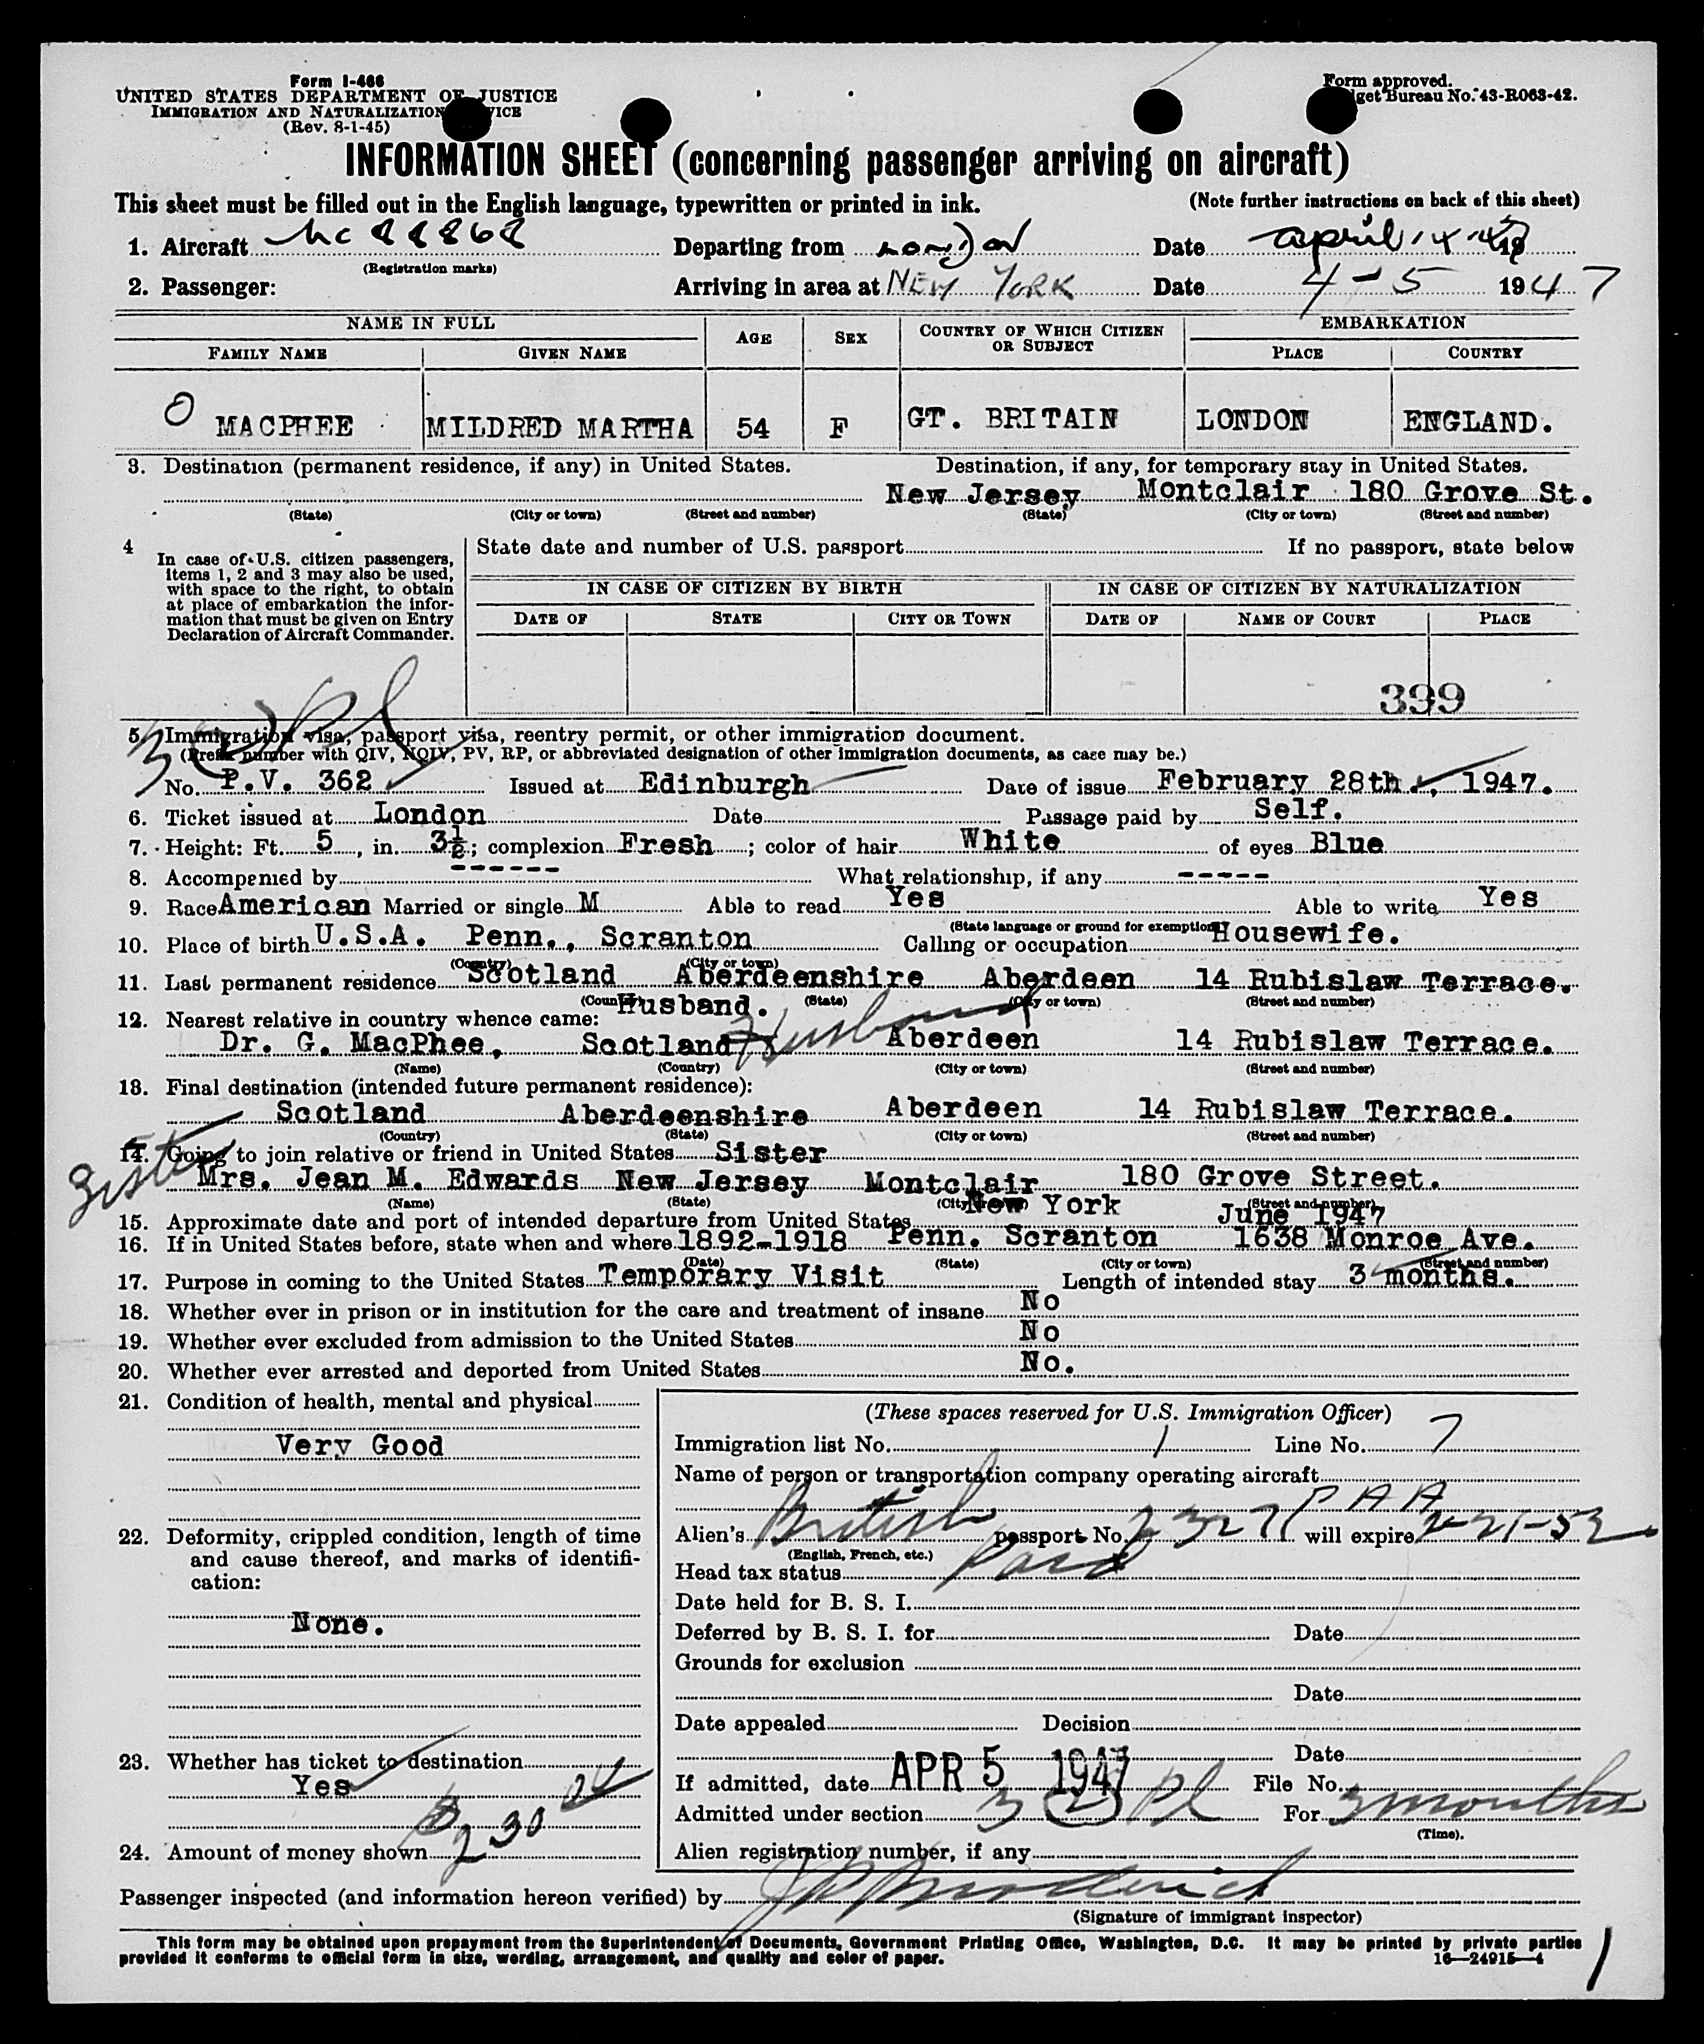 Form I-466
UNITED STATES DEPARTMENT OF JUSTICE
IMMIGRATION AND NATURALIZATION SERVICE
(Rev. 8-1-45)
Form approved.
Budget Bureau No. 43-R063-42.
INFORMATION SHEET (concerning passenger arriving on aircraft)
This sheet must be filled out in the English language, typewritten or printed in ink. (Note further instructions on back of this sheet)
1. Aircraft NC 88868 Departing from London Date April 4 1947
(Registration marks)
2. Passenger: Arriving in area at NEW YORK Date 4-5 1947
NAME IN FULL AGE SEX COUNTRY OF WHICH CITIZEN OR SUBJECT EMBARKATION
FAMILY NAME GIVEN NAME PLACE COUNTRY
O MACPHEE MILDRED MARTHA 54 F GT. BRITAIN LONDON ENGLAND.
3. Destination (permanent residence, if any) in United States. Destination, if any, for temporary stay in United States.
New Jersey Montclair 180 Grove St.
(State) (City or town) (Street and number) (State) (City or town) (Street and number)
4 In case of U.S. citizen passengers, items 1, 2 and 3 may also be used, with space to the right, to obtain at place of embarkation the information that must be given on Entry Declaration of Aircraft Commander.
State date and number of U.S. passport If no passport, state below
IN CASE OF CITIZEN BY BIRTH IN CASE OF CITIZEN BY NATURALIZATION
DATE OF STATE CITY OR TOWN DATE OF NAME OF COURT PLACE
399
5. Immigration visa, passport visa, reentry permit, or other immigration document.
(Prefix number with QIV, NQIV, PV, RP, or abbreviated designation of other immigration documents, as case may be.)
No. P.V. 362 Issued at Edinburgh Date of issue February 28th, 1947.
6. Ticket issued at London Date Passage paid by Self.
7. Height: Ft. 5, in. 3½; complexion Fresh; color of hair White of eyes Blue
8. Accompanied by ------ What relationship, if any -----
9. Race American Married or single M Able to read Yes Able to write Yes
(State language or ground for exemption)
10. Place of birth U.S.A. Penn., Scranton Calling or occupation Housewife.
(Country) (City or town)
11. Last permanent residence Scotland Aberdeenshire Aberdeen 14 Rubislaw Terrace.
(Country) (State) (City or town) (Street and number)
12. Nearest relative in country whence came: Husband.
Dr. G. MacPhee, Scotland Husband Aberdeen 14 Rubislaw Terrace.
(Name) (Country) (City or town) (Street and number)
13. Final destination (intended future permanent residence):
Scotland Aberdeenshire Aberdeen 14 Rubislaw Terrace.
(Country) (State) (City or town) (Street and number)
14. Going to join relative or friend in United States Sister
Sister Mrs. Jean M. Edwards New Jersey Montclair 180 Grove Street.
(Name) (State) (City or town) (Street and number)
15. Approximate date and port of intended departure from United States New York June 1947
16. If in United States before, state when and where 1892-1918 Penn. Scranton 1638 Monroe Ave.
(Date) (State) (City or town) (Street and number)
17. Purpose in coming to the United States Temporary Visit Length of intended stay 3 months.
18. Whether ever in prison or in institution for the care and treatment of insane No
19. Whether ever excluded from admission to the United States No
20. Whether ever arrested and deported from United States No.
21. Condition of health, mental and physical
Very Good
22. Deformity, crippled condition, length of time and cause thereof, and marks of identification:
None.
23. Whether has ticket to destination
Yes
24. Amount of money shown $230
(These spaces reserved for U.S. Immigration Officer)
Immigration list No. 1 Line No. 7
Name of person or transportation company operating aircraft
PAA
Alien's British passport No. 23271 will expire 2-21-52
(English, French, etc.)
Head tax status Paid
Date held for B. S. I.
Deferred by B. S. I. for Date
Grounds for exclusion
Date
Date appealed Decision
Date
If admitted, date APR 5 1947 File No.
Admitted under section 3 (2) Pl For 3 months
(Time).
Alien registration number, if any
Passenger inspected (and information hereon verified) by
(Signature of immigrant inspector)
This form may be obtained upon prepayment from the Superintendent of Documents, Government Printing Office, Washington, D.C. It may be printed by private parties
provided it conforms to official form in size, wording, arrangement, and quality and color of paper. 16—24915-4
1